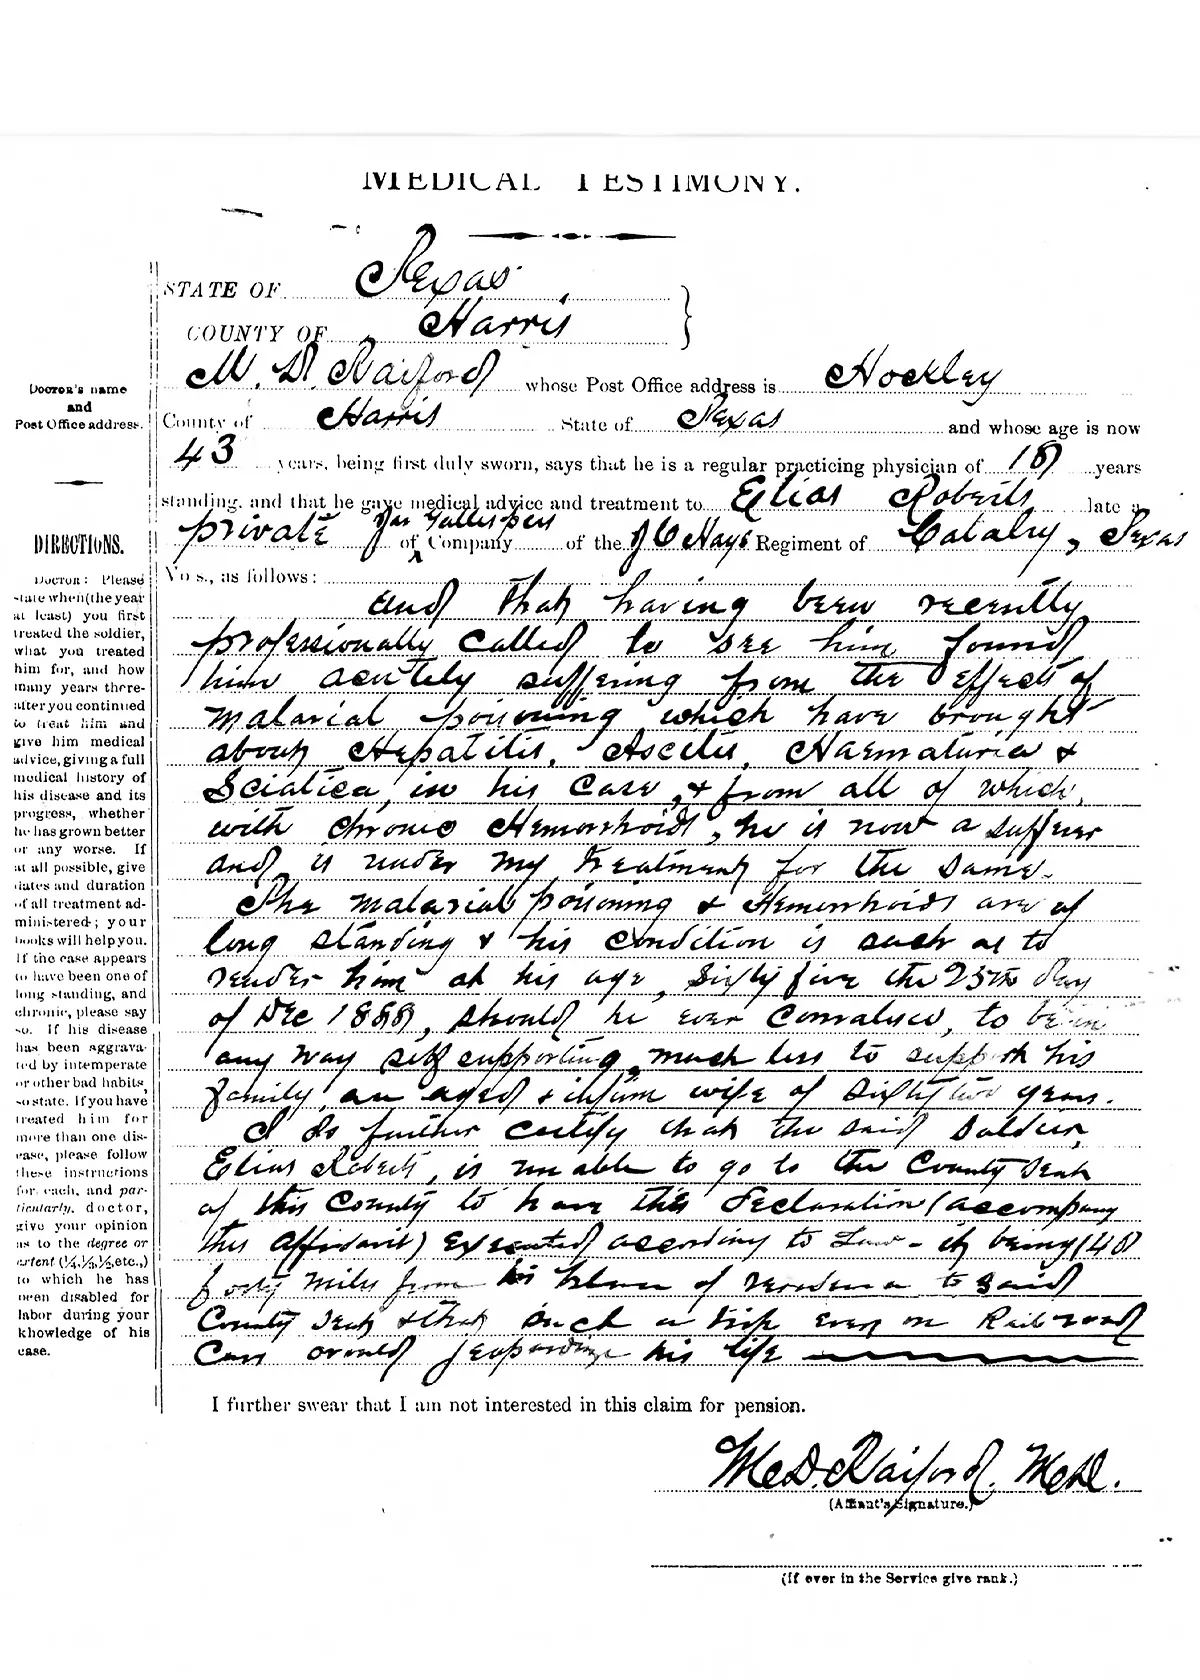 MEDICAL TESTIMONY.
STATE OF Texas,
COUNTY OF Harris
M. D. Raiford whose Post Office address is Hockley
County of Harris State of Texas and whose age is now
43 years, being first duly sworn, says that he is a regular practicing physician of 18 years
standing, and that he gave medical advice and treatment to Elias Roberts late a
private of Jas Gallespies Company of the J C Hays Regiment of Cavalry, Texas
Vo s., as follows:
and that having been recently
professionally called to see him found
him acutely suffering from the effects of
malarial poisoning which have brought
about Hepatitis, Ascites, Haematuria &
Sciatica, in his case, & from all of which,
with chronic Hemorrhoids, he is now a sufferer
and is under my treatment for the same.
The malarial poisoning & Hemorrhoids are of
long standing & his condition is such as to
render him at his age, Sixty five the 25th day
of Dec 1888, should he ever convalesce, to be in
any way self supporting, much less to support his
family, an aged & infirm wife of sixty two years.
I do further certify that the said Soldier,
Elias Roberts, is unable to go to the County Seat
of this County to have this declaration (accompany
this affidavit) executed according to Law - it being (40)
forty miles from his place of residence to said
County Seat & that such a trip even on Railroad
Cars would jeopardize his life
I further swear that I am not interested in this claim for pension.
M. D. Raiford. M.D.
(Affiant's Signature.)
(If ever in the Service give rank.)
Doctor's name
and
Post Office address.
DIRECTIONS.
Doctor: Please
state when (the year
at least) you first
treated the soldier,
what you treated
him for, and how
many years there-
after you continued
to treat him and
give him medical
advice, giving a full
medical history of
his disease and its
progress, whether
he has grown better
or any worse. If
at all possible, give
dates and duration
of all treatment ad-
ministered; your
books will help you.
If the case appears
to have been one of
long standing, and
chronic, please say
so. If his disease
has been aggrava-
ted by intemperate
or other bad habits,
so state. If you have
treated him for
more than one dis-
ease, please follow
these instructions
for each, and par-
ticularly, doctor,
give your opinion
as to the degree or
extent (¼, ⅓, ½, etc.,)
to which he has
been disabled for
labor during your
khowledge of his
case.